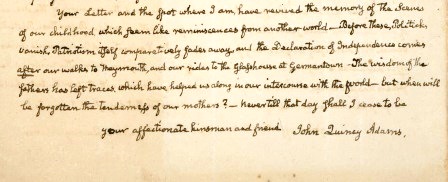 Your Letter and the Spot where I am have revived the memory of the Scenes
of our childhood, which seem like reminiscences from another world — Before these, Politicks
vanish, Patriotism itself comparatively fades away, and the Declaration of Independence comes
after our walks to Weymouth, and our rides to the Glasshouse at Germantown — The wisdom of the
fathers has left traces, which have helped us along in our intercourse with the world — but when will
be forgotten the tenderness of our mothers? — never till that day shall I cease to be
your affectionate kinsman and friend John Quincy Adams.